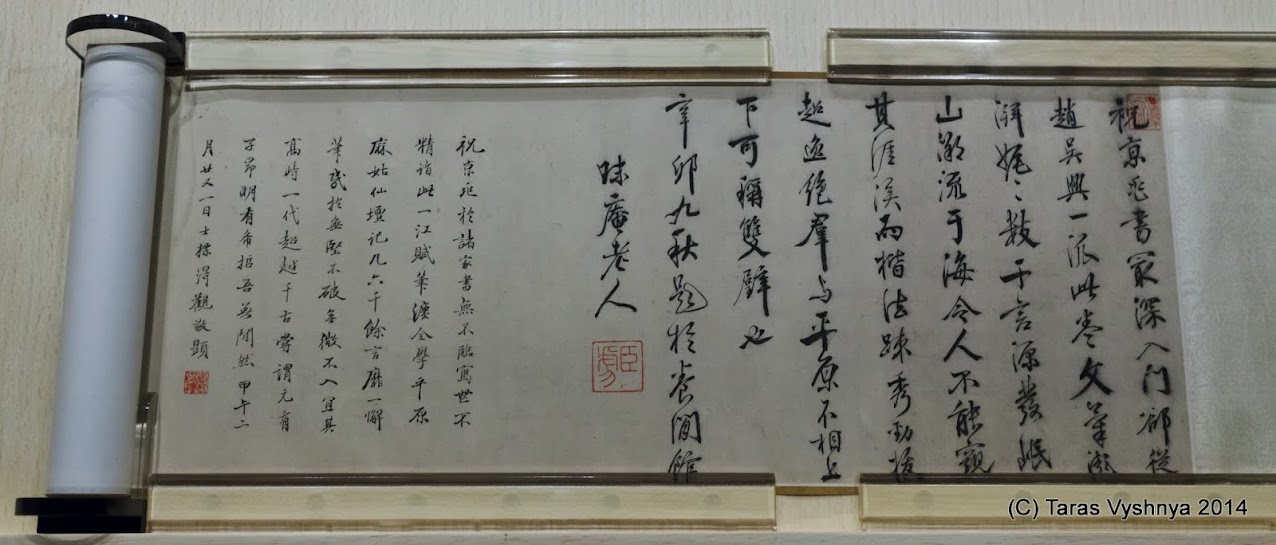 祝京兆書最深入門卻從
趙吳興一派此卷文筆瀾
澥娓〻數千言源發岷
山漸流于海令人不能窺
其涯涘而楷法疎秀勁拔
超逸絕羣与平原不相上
下可稱雙璧也
辛卯九秋題於長閒館
味庵老人
祝京兆於諸家書無不臨寫世不
精詣此一江賦筆續全學平原
麻姑仙壇記凡六千餘言靡一懈
筆或於無堅不破無微不入宜其
高時一代超越千古嘗謂元有
子昂明有希招吾無閒然甲午二
月廿又一日士標得觀敬題
(C) Taras Vyshnya 2014